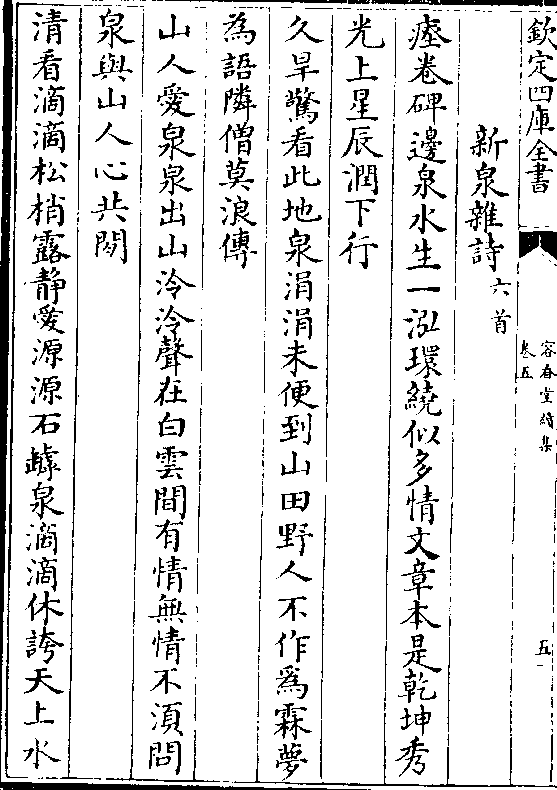 欽定四庫全書
容春堂續集
卷五
五
新泉雜詩六首
瘞卷碑邊泉水生一泓環繞似多情文章本是乾坤秀
光上星辰潤下行
久旱驚看此地泉涓涓未便到山田野人不作為霖夢
為語隣僧莫浪傳
山人愛泉泉出山泠泠聲在白雲間有情無情不須問
泉與山人心共閒
清看滴滴松梢露静愛源源石罅泉滴滴休誇天上水